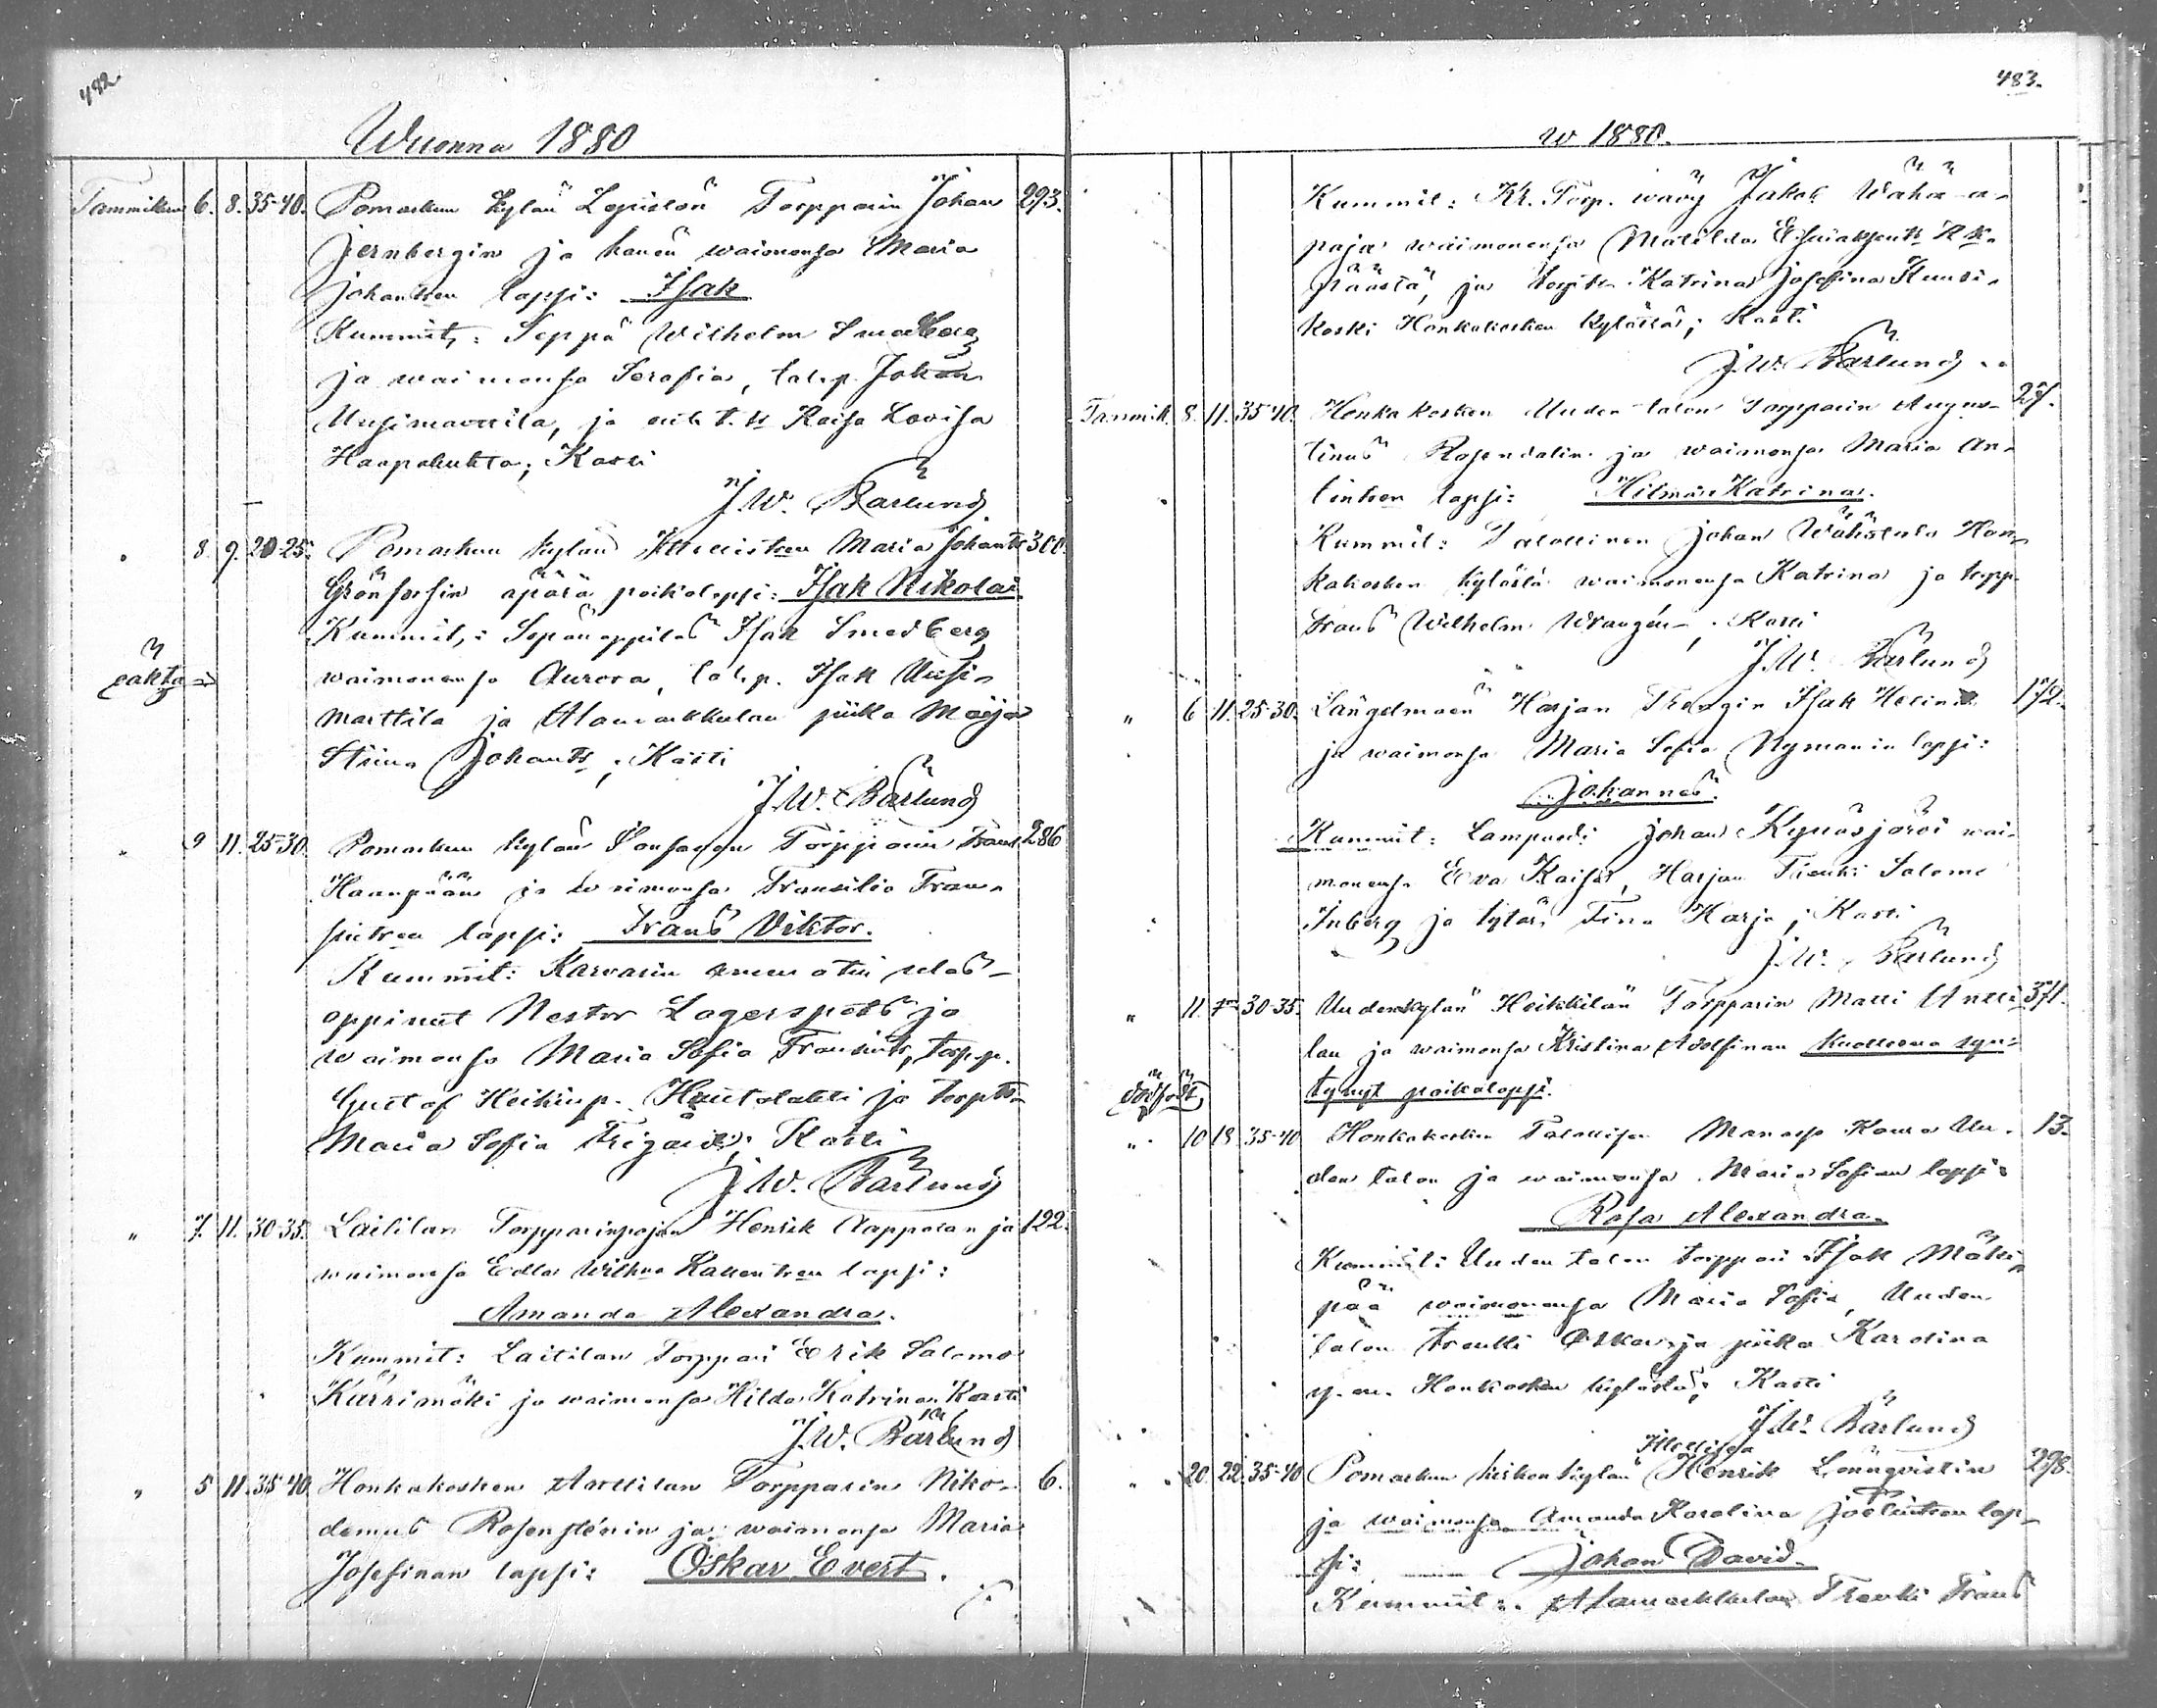 482.
Wuonna 1880
Tammikuu 6. 8. 35-40. Pomarkun kylän Lepistön Torpparin Johan 293.
Jernbergin ja hänen waimonsa Maria
Johantren lapsi: Isak
Kummit,: Seppä Wilhelm Smedberg
ja waimonsa Serafia, tal.p. Johan
Uusimarttila, ja Kaisa Lovisa
Haapaluhta; Kasti
J. W. Bärlund
" 8. 9. 20-25. Pomarkun kylän Itsellisen Maria Johants 300.
Grönforsin äpärä poikalapsi: Isak Nikolai.
Kummit,: Sepänoppilas Isak Smedberg
waimonensa Aurora, tal.p. Isak Uusi-
marttila ja Alamarkkulan piika Maija
Stiina Johants; Kasti
J. W. Bärlund
" 9 11. 25-30. Pomarkun kylän Torpparin Frans 286
Haanpään ja waimonsa Fransilia Fran-
sintren lapsi: Frans Viktor.
Kummit: Karvarin ulos-
oppinut Nestor Lagerspets ja
waimonsa Maria Sofia Fransints, torp.p.
Gustaf Heikinp. Hautalahti ja torpts
Maria Sofia; Kasti
J. W. Bärlund
" 7. 11. 30-35. Laitilan Torpparinpojan Henrik Aappolan ja 122.
waimonsa Edla Wilhna Kallentren lapsi:
Amanda Alexandra.
Kummit: Laitilan Torppari Erik Salomo
Kärrimäki ja waimonsa Hilda Katrina. Kasti
J. W. Bärlund
" 5 11. 35-40. Honkakosken Anttilan Torpparin Niko- 6.
demus Rosenstenin ja waimonsa Maria
Josefinan lapsi: Oskar Evert.
483.
w 1880.
Kummit: Kr. Torp. wäwy Jakob Wähä-a-
paja waimonensa Matilda
päästä, ja torpts Katrina Josefina Kuusi-
koski Honkakosken kylästä; Kasti
J. W. Bärlund
Tammik. 8. 11. 35-40. Honkakosken Uuden talon Torpparin Augus- 27.
tinus Rosendalin ja waimonsa Maria An-
tintren lapsi: Hilma Katrina.
Kummit: Talollinen Johan Wähätalo Hon-
kakosken kylästä waimonensa Katrina ja torpp
Frans Wilhelm Wrangén; Kasti
J. W. Bärlund
" 6 11. 25-30. Längelmäen Harjan Trengin Isak Helinin 172.
ja waimonsa Maria Sofia Nymanin lapsi:
Johannes.
Kummit: Lampuodi Johan Kynäsjärvi wai-
monensa Eva Kaisa, Harjan Trenki Salomo
Inberg ja tytär Tina Harja; Kasti
J. W. Bärlund
" 11. 7 30-35. Uudenkylän Heikkilän Torpparin Matti Antti- 371.
lan ja waimonsa Kristina Adolfinan kuolleena syn-
tynyt poikalapsi.
" 10 18 35-40 Honkakosken Talollisen Manasse Uu- 13.
den talon ja waimonsa Maria Sofian lapsi
Rosa Alexandra.
Kummit: Uuden talon torppari Isak Mäki-
pää waimonensa Maria Sofia, Uuden
talon trenki Oskar ja piika Karolina
y.m. Honkakosken kylästä; Kasti
J. W. Bärlund
" 20. 22. 35-40 Pomarkun kirkonkylän Itsellisen Henrik Lönnqvistin 298.
ja waimonsa Amanda Karolina Joelintren lap-
si: Johan David.
Kummit: Alamarkkulan Trenki Frans